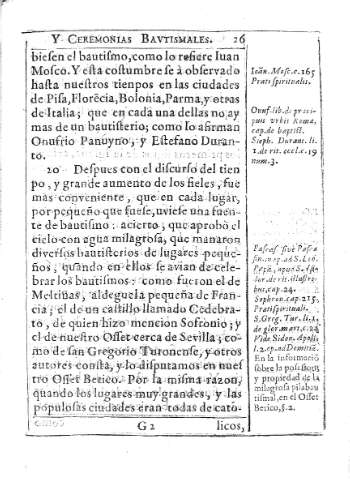 Y CEREMONIAS BAVTISMALES. 26
biesen el bautismo, como lo refiere Iuan
Mosco. Y esta costumbre se à observado
hasta nuestros tienpos en las ciudades
de Pisa, Florẽcia, Bolonia, Parma, y otras
de Italia; que en cada una dellas no ay
mas de un bautisterio; como lo afirman
Onufrio Panuyno, y Estefano Duran-
to.
20 Despues con el discurso del tien
po, y grande aumento de los fieles, fue
mas conveniente, que en cada lugar,
por pequeño que fuese, uviese una fuen-
te de bautismo: acierto, que aprobò el
cielo con agua milagrosa, que manaron
diversos bautisterios de lugares peque-
ños, quando en ellos se avian de cele-
brar los bautismos: como fueron el de
Melcinas, aldeguela pequeña de Fran-
cia; el de un castillo llamado Cedebra-
to, de quien hizo mencion Sofronio; y
el de nuestro Osset cerca de Sevilla; co-
mo de san Gregorio Turonense, y otros
autores consta, y lo disputamos en nues
tro Osset Betico. Por la misma razon,
quando los lugares muy grandes, y las
populosas ciudades eran todas de cato-
G 2 licos,
Ioãn. Mosc. c. 265
Prati spiritualis.
Onuf. lib. de præci
puis urbis Romæ,
cap. de baptist.
Steph. Durant. li.
1. de rit. eccl. c. 19
num. 3.
cap. 24.
Sophron. cap. 215.
Prati spiritualis.
S. Greg. Tur. li. 1.
de glor. mart. c. 24
En la informaciõ
sobre la posesion,
y propiedad de la
milagrosa pila bau
tismal, en el Osset
Betico, §. 2.